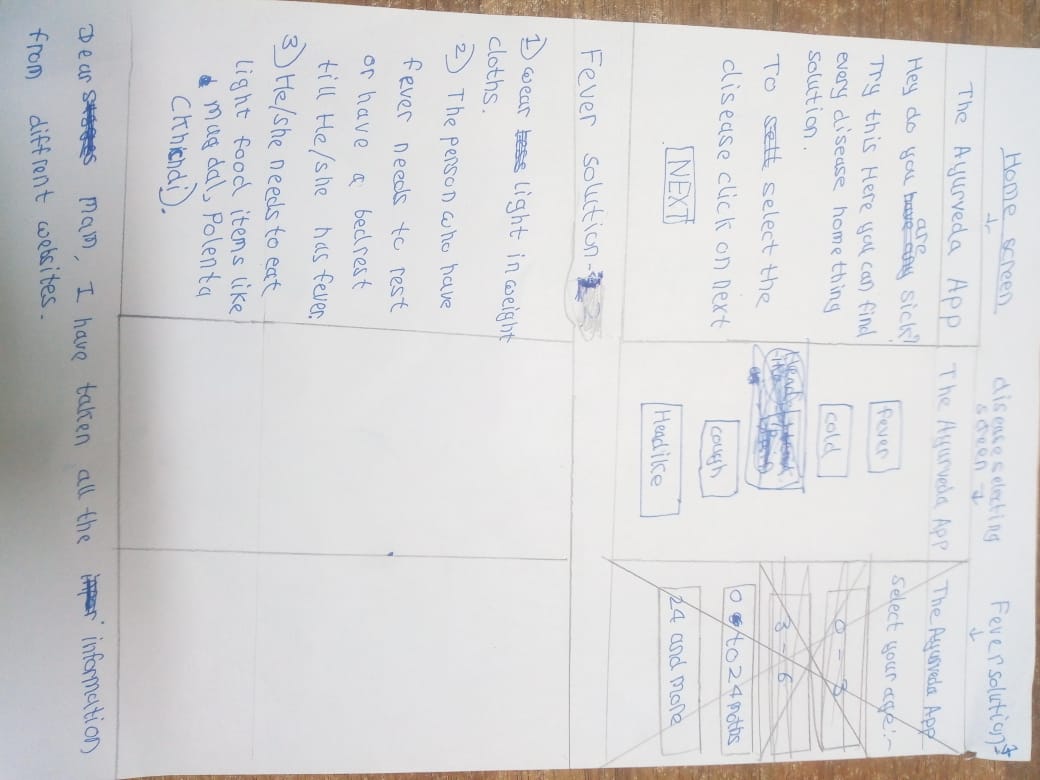 Home screen
↓
The Ayurveda App
Hey do you are sick?
Try this Here you can find
every disease home thing
solution.
To select the
disease click on next
NEXT
disease selecting
screen →
The Ayurveda App
fever
cold
cough
Headike
Fever solution
↓
The Ayurveda App
select your age:-
0 - 3
3 - 6
0 to 24 moths
24 and more
Fever solution-
1) wear light in weight
cloths.
2) The person who have
fever needs to rest
or have a bedrest
till He/she has fever.
3) He/she needs to eat
light food items like
mug dal, Polenta
(Khichdi).
Dear mam, I have taken all the information
from diffrent websites.